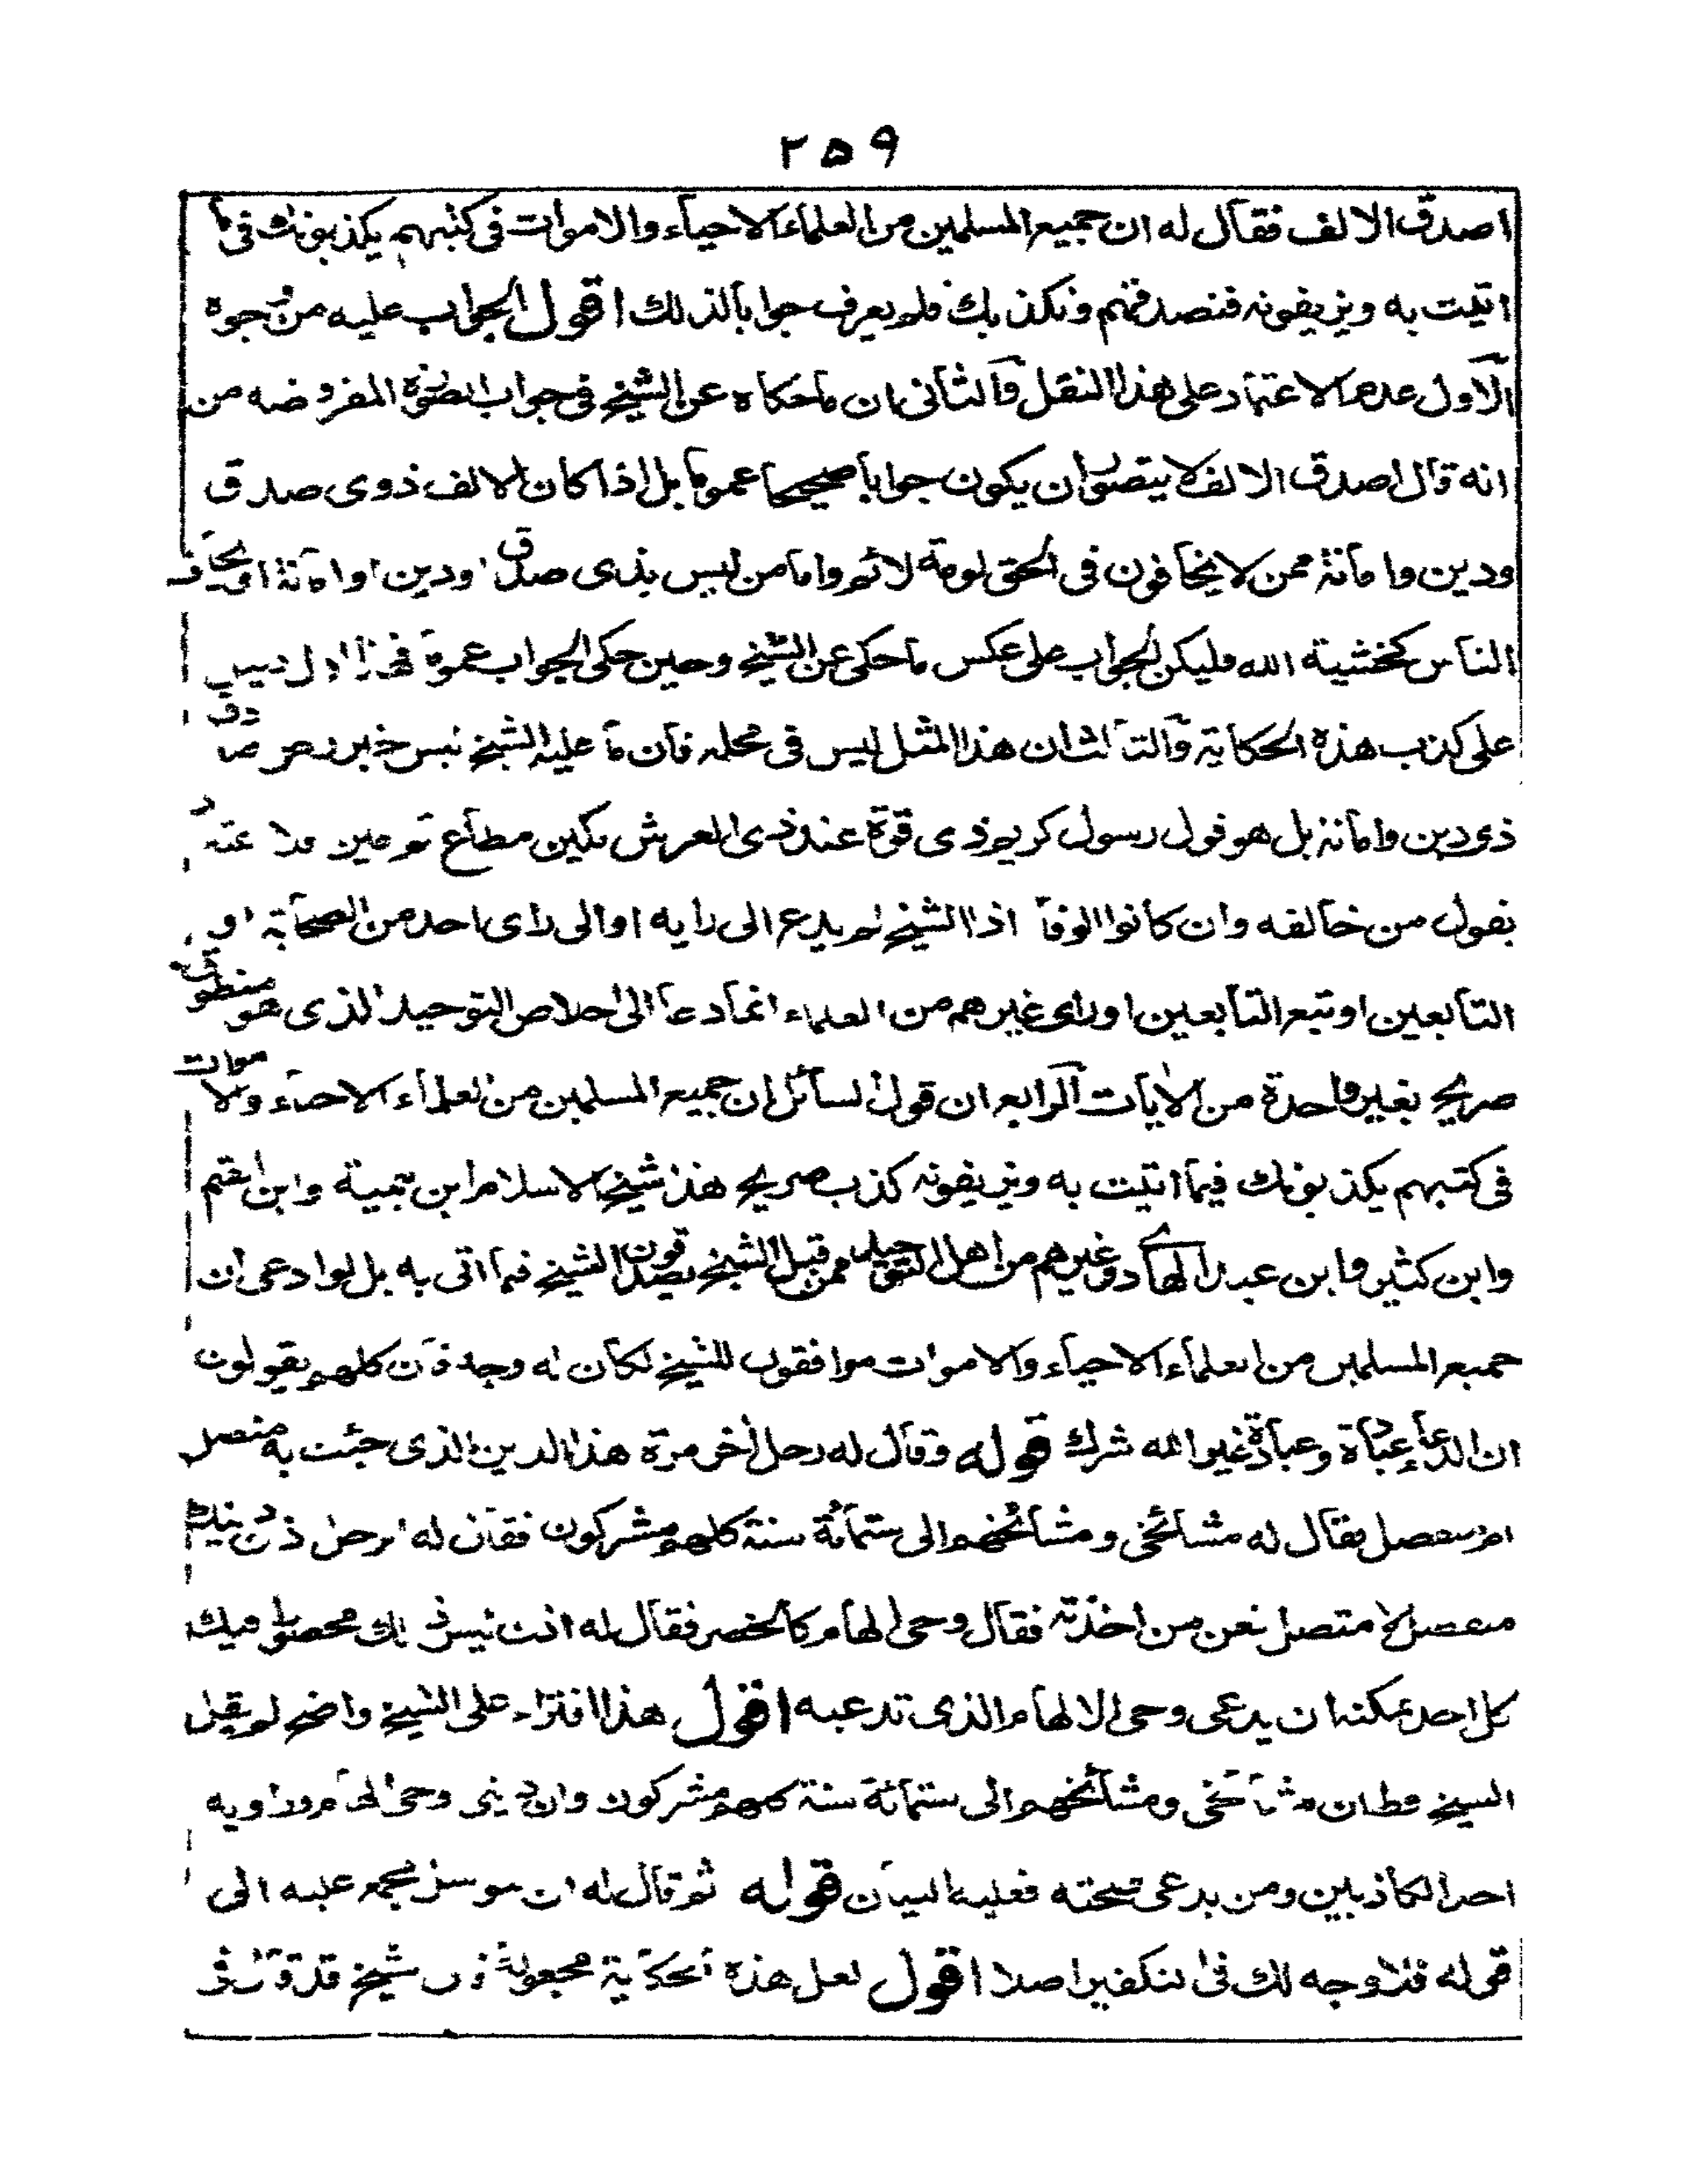 ٢٥٩
اصدق الالف فقال له ان جميع المسلمين من العلماء الاحياء والاموات فى كتبهم يكذبونك فى ما
اتيت به ويزيفونه فنصدقهم ونكذبك فلم يعرف جوابا لذلك اقول الجواب عليه من وجوه
الاول عدم الاعتماد على هذا النقل والثانى ان ما حكاه عن الشيخ فى جواب الصورة المفروضه من
انه قال اصدق الالف لا يتصور ان يكون جوابا صحيحا عموما بل اذا كان الالف ذوى صدق
ودين وامانة ممن لا يخافون فى الحق لومة لائم واما من ليس بذى صدق ودين او امانة او يخاف
الناس كخشية الله فليكن الجواب على عكس ما حكى عن الشيخ وحين حكى الجواب عموما فهذا ادل دليل
على كذب هذه الحكاية والثالث ان هذا المثل ليس فى محله فان ما عليه الشيخ ليس خبر رجل صادق
ذى دين وامانة بل هو قول رسول كريم ذى قوة عند ذى العرش مكين مطاع ثم امين فلا عبرة
بقول من خالفه وان كانوا الوفا اذا الشيخ لم يدع الى رايه او الى راى احد من الصحابة او
التابعين او تبع التابعين او راى غيرهم من العلماء انما دعا الى اخلاص التوحيد الذى هو منطوق
صريح بغير واحدة من الايات الرابع ان قول السائل ان جميع المسلمين من العلماء الاحياء والاموات
فى كتبهم يكذبونك فيما اتيت به ويزيفونه كذب صريح هذا شيخ الاسلام ابن تيمية وابن القيم
وابن كثير وابن عبد الهادى وغيرهم من اهل التوحيد ممن قبل الشيخ يصدقون الشيخ فيما اتى به بل لو ادعى ان
جميع المسلمين من العلماء الاحياء والاموات موافقون للشيخ لكان له وجه فان كلهم يقولون
ان الدعاء عبادة وعبادة غير الله شرك قوله وقال له رجل اخر مرة هذا الدين الذى جئت به متصل
ام منفصل فقال له مشائخى ومشائخهم الى ستمائة سنة كلهم مشركون فقال له الرجل اذن دينك
منفصل لا متصل فعن من اخذته فقال وحى الهام كالخضر فقال له اذن ليس ذلك محصورا فيك
كل احد يمكنه ان يدعى وحى الالهام الذى تدعيه اقول هذا افتراء على الشيخ واضح لم يقل
الشيخ قط ان مشائخى ومشائخهم الى ستمائة سنة كلهم مشركون وان دينى وحى الهام وراويه
احد الكاذبين ومن يدعى صحته فعليه البيان قوله ثم قال له ان التوسل مجمع عليه الى
قوله فلا وجه لك فى التكفير اصلا اقول لعل هذه الحكاية مجعولة فان الشيخ قد